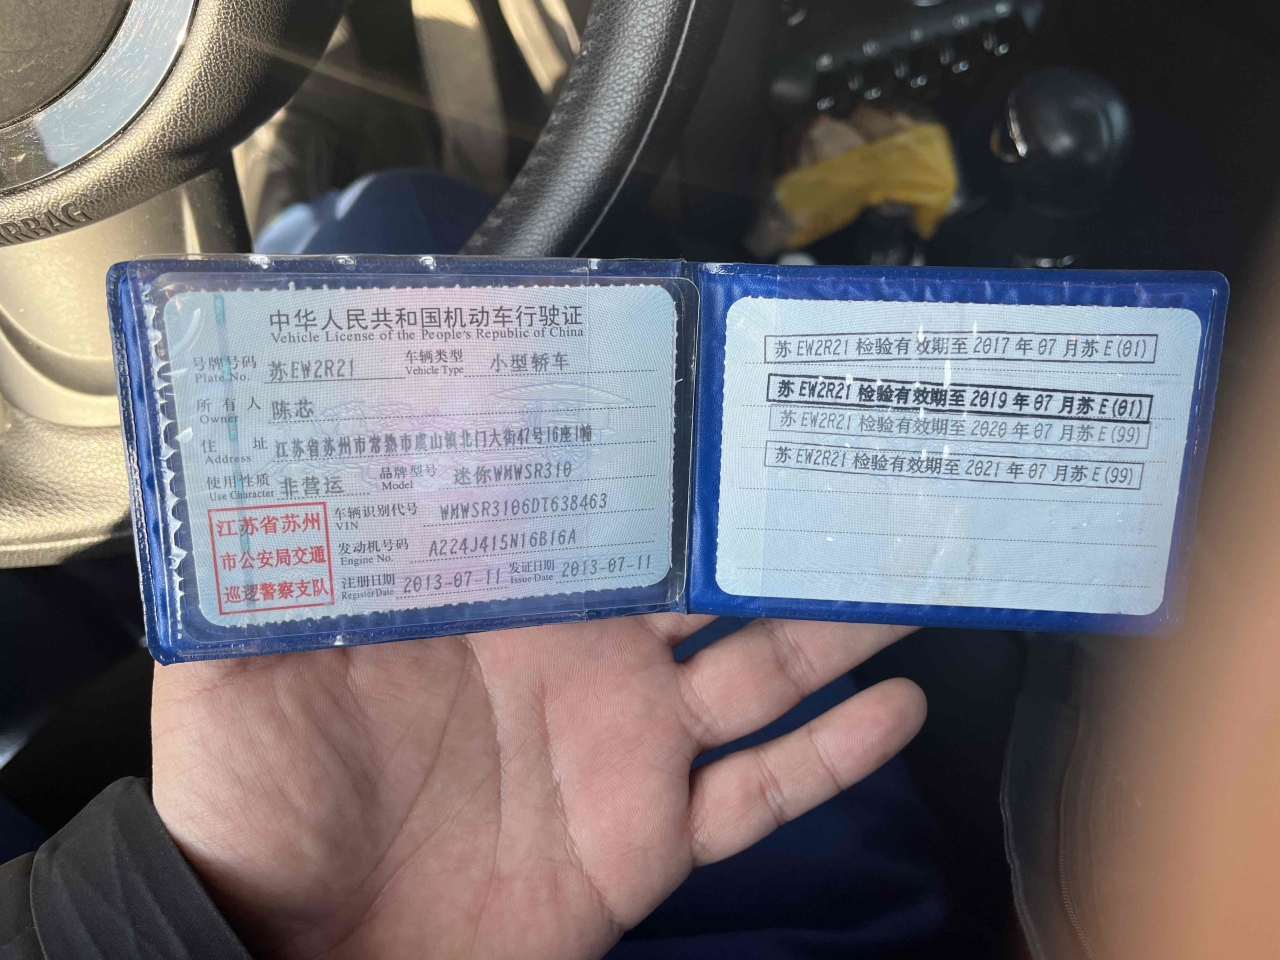 中华人民共和国机动车行驶证
Vehicle License of the People's Republic of China
号牌号码 苏EW2R21 车辆类型 小型轿车
Plate No. Vehicle Type
所有人 陈芯
Owner
住址 江苏省苏州市常熟市虞山镇北门大街47号16座1幢
Address
使用性质 非营运 品牌型号 迷你WMWSR310
Use Character Model
江苏省苏州
市公安局交通
巡逻警察支队
车辆识别代号 WMWSR3106DT638463
VIN
发动机号码 A224J415N16B16A
Engine No.
注册日期 2013-07-11 发证日期 2013-07-11
Register Date Issue Date
苏EW2R21 检验有效期至 2017 年 07 月苏E(01)
苏EW2R21 检验有效期至 2019 年 07 月苏E(01)
苏EW2R21 检验有效期至 2020 年 07 月苏E(99)
苏EW2R21 检验有效期至 2021 年 07 月苏E(99)